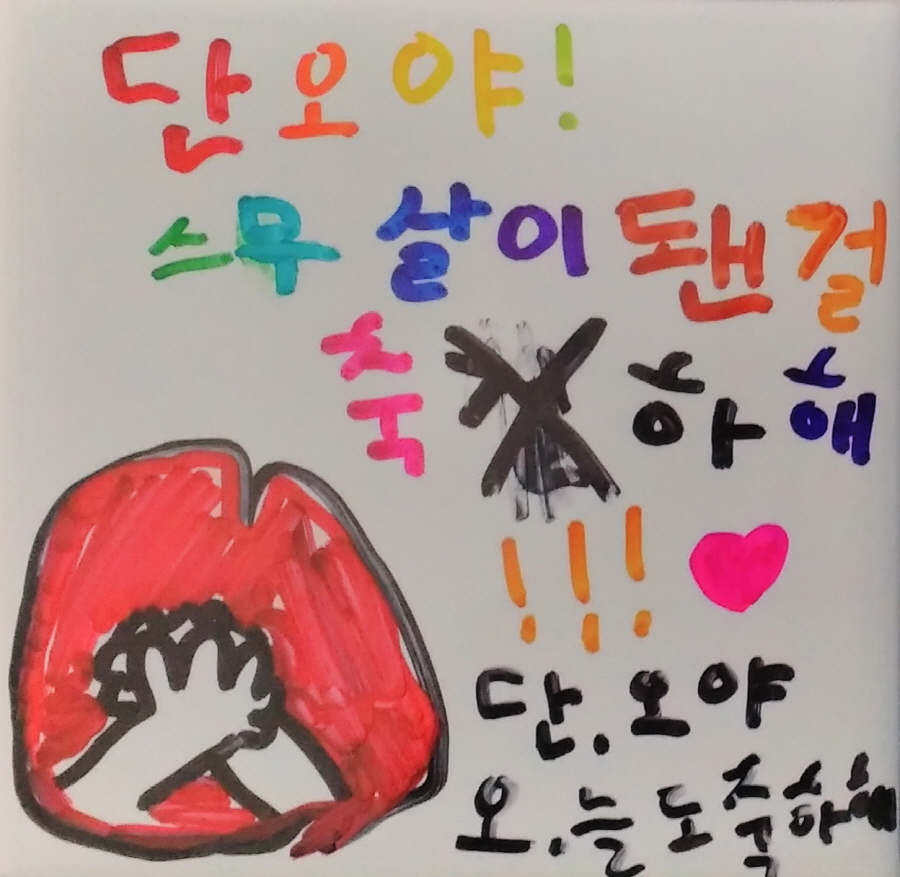 단오야!
스무 살이 됀 걸
축 하해
!!! ♥
단.오야
오.늘도 축하해